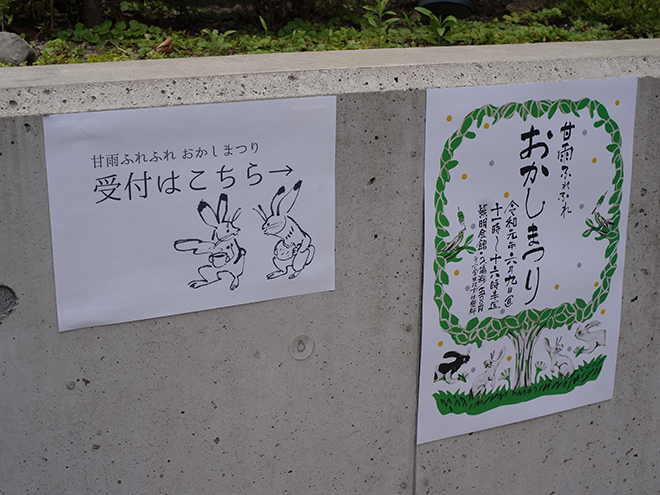 甘雨ふれふれ おかしまつり
受付はこちら→
甘雨ふれふれ
おかしまつり
令和元年六月九日㊐
十一時〜十六時半迄